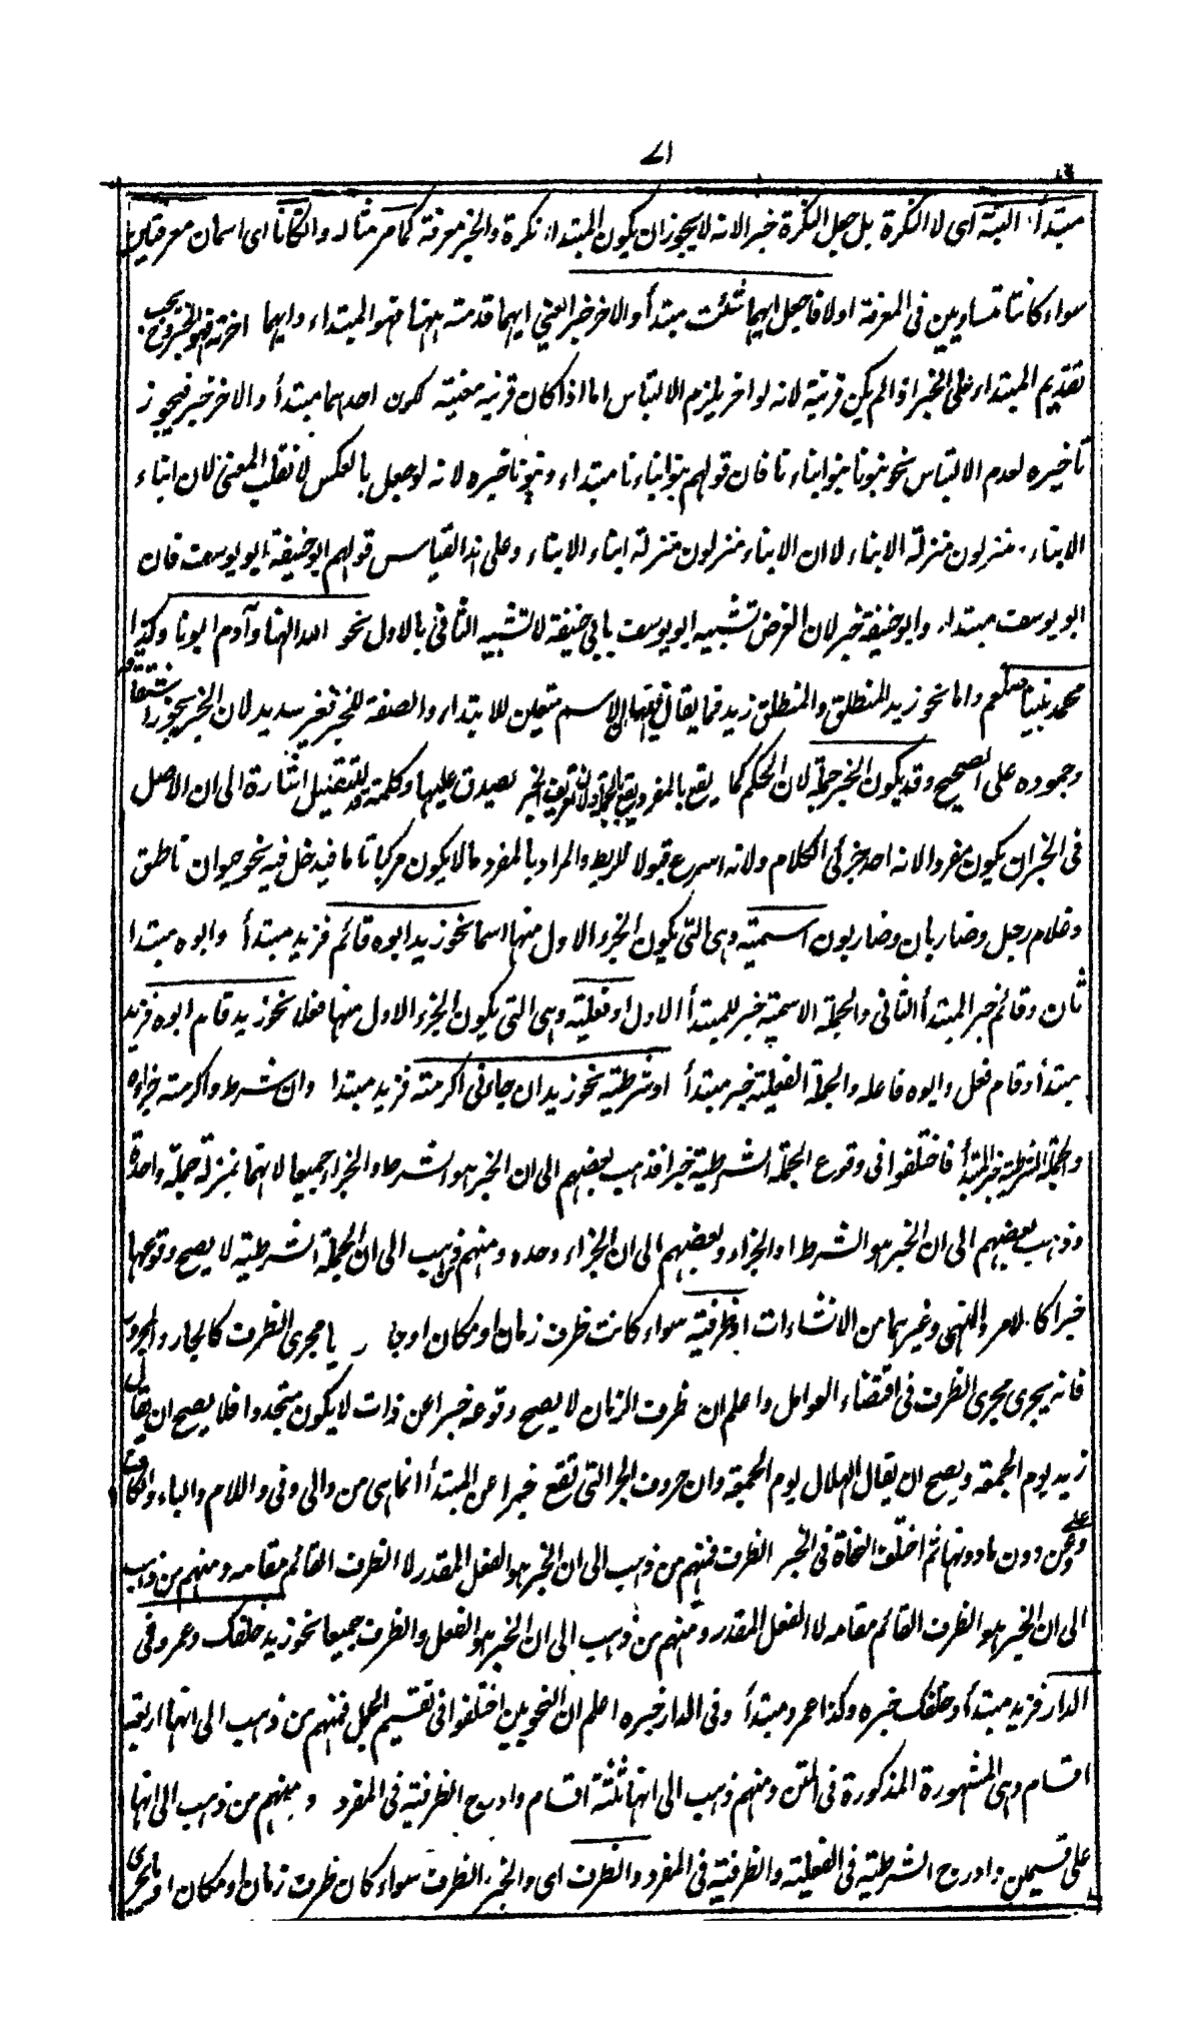 ٧١
مبتدأ البتة اى لا النكرة بل جعل النكرة خبرا لانه لا يجوز ان يكون المبتداء نكرة والخبر معرفة كما مر مثاله وان كانا اى اسمان معرفتين
سواء كانتا متساويين فى المعرفة اولا فاجعل ايهما شئت مبتدأ والاخر خبرا يعنى ايهما قدمته ههنا فهو المبتداء وايهما اخرته فهو الخبر وح يجب
تقديم المبتداء على الخبر اذا لم يكن قرينة لانه لو اخر يلزم الالتباس اما اذا كان قرينة معينة لكون احدهما مبتدأ والاخر خبر فيجوز
تاخيره لعدم الالتباس نحو بنونا بنو ابناءنا فان قولهم بنو ابناءنا مبتداء وبنونا خبره لانه لو جعل بالعكس لانقلب المعنى لان ابناء
الابناء منزلون منزلة الابناء لا ان الابناء منزلون منزلة ابناء الابناء وعلى هذا القياس قولهم ابو حنيفة ابو يوسف فان
ابو يوسف مبتداء وابو حنيفة خبر لان الغرض تشبيه ابو يوسف بابى حنيفة لا تشبيه الثانى بالاول نحو الله الهنا وآدم ابونا وكذا
محمد نبينا صلعم واما نحو زيد المنطلق والمنطلق زيد فما يقال فيهما ان الاسم متعين للابتداء والصفة للخبر فغير سديد لان الخبر يجوز اشتقاقه
وجموده على الصحيح وقد يكون الخبر جملة لان الحكم كما يقع بالمفرد يقع بالجملة ولان تعريف الخبر يصدق عليها وكلمة قد للتقليل اشارة الى ان الاصل
فى الخبر ان يكون مفردا لانه احد جزئى الكلام ولانه اسرع قبولا للربط والمراد بالمفرد ما لا يكون مركبا تاما فيدخل فيه نحو حيوان ناطق
وغلام رجل وضاربان وضاربون اسمية وهى التى يكون الجزء الاول منها اسما نحو زيد ابوه قائم فزيد مبتدأ وابوه مبتدا
ثان وقائم خبر المبتدأ الثانى والجملة الاسمية خبر للمبتدأ الاول او فعلية وهى التى يكون الجزء الاول منها فعلا نحو زيد قام ابوه فزيد
مبتدأ وقام فعل وابوه فاعله والجملة الفعلية خبر مبتدأ او شرطية نحو زيد ان جاءنى اكرمته فزيد مبتدا وان شرط واكرمته جزاؤه
والجملة الشرطية خبر المبتدأ فاختلفوا فى وقوع الجملة الشرطية خبرا فذهب بعضهم الى ان الخبر هو الشرط والجزاء جميعا لانهما بمنزلة جملة واحدة
وذهب بعضهم الى ان الخبر هو الشرط والجزاء وبعضهم الى ان الجزاء وحده ومنهم من ذهب الى ان الجملة الشرطية لا يصح وقوعها
خبرا كالامر والنهى وغيرهما من الانشاءات او ظرفية سواء كانت ظرف زمان او مكان او جاريا مجرى الظرف كالجار والمجرور
فانه يجرى مجرى الظرف فى اقتضاء العوامل واعلم ان ظرف الزمان لا يصح وقوعه خبرا عن ذات لا يكون متجددا فلا يصح ان يقال
زيد يوم الجمعة ويصح ان يقال الهلال يوم الجمعة وان حروف الجر التى تقع خبرا عن المبتدأ انما هى من والى وفى واللام والباء والكاف
وعلى وعن دون ما دونها ثم اختلف النحاة فى الخبر الظرف فمنهم من ذهب الى ان الخبر هو الفعل المقدر لا الظرف القائم مقامه ومنهم من ذهب
الى ان الخبر هو الظرف القائم مقامه لا الفعل المقدر ومنهم من ذهب الى ان الخبر هو الفعل والظرف جميعا نحو زيد خلفك وعمرو فى
الدار فزيد مبتدأ وخلفك خبره وكذا عمرو مبتدأ وفى الدار خبره اعلم ان النحويين اختلفوا فى تقسيم الجمل فمنهم من ذهب الى انها اربعة
اقسام وهى المشهورة المذكورة فى المتن ومنهم ذهب الى انها ثلثة اقسام وادرج الظرفية فى المفرد ومنهم من ذهب الى انها
على قسمين وادرج الشرطية فى الفعلية والظرفية فى المفرد والظرف اى والخبر الظرف سواء كان ظرف زمان او مكان او ما يجرى